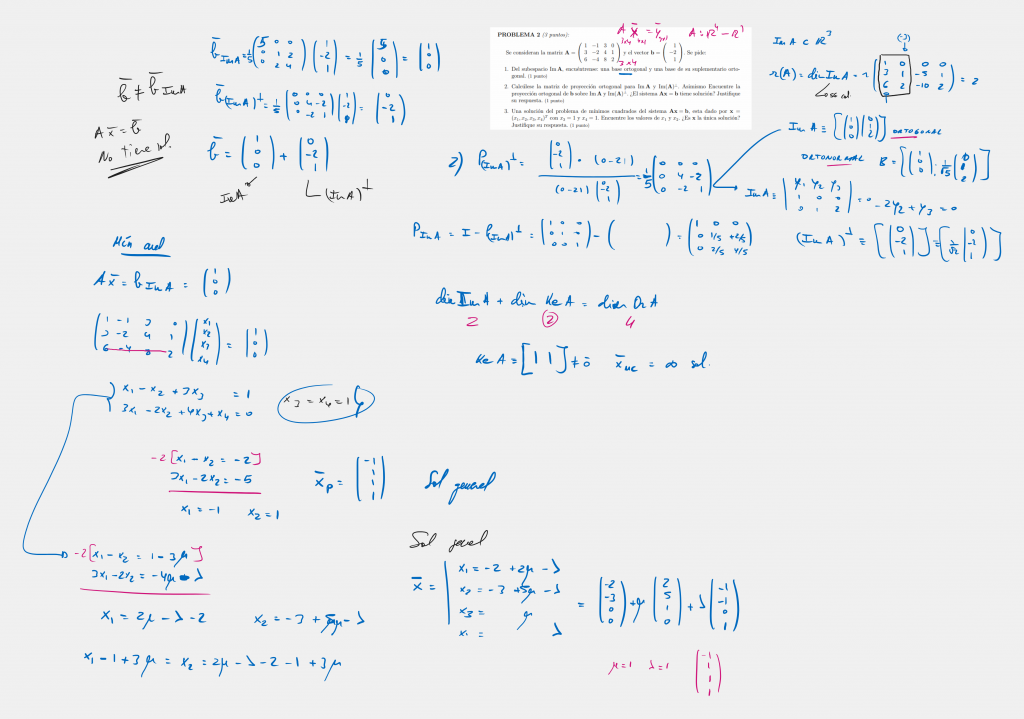 PROBLEMA 2 (3 puntos):
A x̄ = ȳ
3x4 4x1 3x1
A: R⁴ → R³
Se consideran la matriz A = ( 1 −1 3 0 ; 3 −2 4 1 ; 6 −4 8 2 ) y el vector b = ( 1 ; −2 ; 1 ). Se pide
3x4
1. Del subespacio Im A, encuéntrense: una base ortogonal y una base de su suplementario orto-
gonal. (1 punto)
2. Calcúlese la matriz de proyección ortogonal para Im A y Im(A)⊥. Asimismo Encuentre la
proyección ortogonal de b sobre Im A y Im(A)⊥. ¿El sistema Ax = b tiene solución? Justifique
su respuesta. (1 punto)
3. Una solución del problema de mínimos cuadrados del sistema Ax = b, esta dado por x =
(x₁, x₂, x₃, x₄)ᵀ con x₃ = 1 y x₄ = 1. Encuentre los valores de x₁ y x₂. ¿Es x la única solución?
Justifique su respuesta. (1 punto)
Im A ⊂ R³
(-3)
r(A) = dim Im A = r ( 1 0 0 0 ; 3 1 -5 1 ; 6 2 -10 2 ) = 2
Im A ≡ [ (1 0 0) (0 1 2) ] ORTOGONAL
ORTONORMAL B = [ (1 0 0) ; 1/√5 (0 1 2) ]
Im A ≡ | y₁ y₂ y₃ ; 1 0 0 ; 0 1 2 | = 0 - 2y₂ + y₃ = 0
(Im A)⊥ ≡ [ (0 -2 1) ]
b̄ Im A = 1/5 ( 5 0 0 ; 0 1 2 ; 0 2 4 ) ( 1 -2 1 ) = 1/5 ( 5 0 0 ) = ( 1 0 0 )
b̄ ≠ b̄ Im A
b̄ (Im A)⊥ = 1/5 ( 0 0 0 ; 0 4 -2 ; 0 -2 1 ) ( 1 -2 1 ) = ( 0 -2 1 )
A x̄ = b̄
No tiene sol.
b̄ = ( 1 0 0 ) + ( 0 -2 1 )
Im A
(Im A)⊥
2) P(Im A)⊥ = ( 0 -2 1 ) · (0 -2 1) / (0 -2 1) ( 0 -2 1 ) = 1/5 ( 0 0 0 ; 0 4 -2 ; 0 -2 1 )
P Im A = I - P(Im A)⊥ = ( 1 0 0 ; 0 1 0 ; 0 0 1 ) - ( ) = ( 1 0 0 ; 0 1/5 +2/5 ; 0 2/5 4/5 )
dim Im A + dim Ke A = dim Or A
2 2 4
Ke A = [ 1 1 ] ≠ 0̄ x̄ mc = ∞ sol.
Min cuad
A x̄ = b Im A = ( 1 0 0 )
( 1 -1 3 0 ; 3 -2 4 1 ; 6 -4 8 2 ) ( x₁ x₂ x₃ x₄ ) = ( 1 0 0 )
x₁ - x₂ + 3x₃ = 1
3x₁ - 2x₂ + 4x₃ + x₄ = 0
x₃ = x₄ = 1
-2 [ x₁ - x₂ = -2 ]
3x₁ - 2x₂ = -5
x₁ = -1 x₂ = 1
x̄p = ( -1 1 1 1 )
Sol general
-2 [ x₁ - x₂ = 1 - 3μ ]
3x₁ - 2x₂ = -4μ - λ
x₁ = 2μ - λ - 2 x₂ = -3 + 5μ - λ
x₁ - 1 + 3μ = x₂ = 2μ - λ - 2 - 1 + 3μ
Sol general
x̄ = | x₁ = -2 + 2μ - λ
x₂ = -3 + 5μ - λ
x₃ = μ
x₄ = λ
= ( -2 -3 0 0 ) + μ ( 2 5 1 0 ) + λ ( -1 -1 0 1 )
μ = 1 λ = 1 ( -1 1 1 1 )